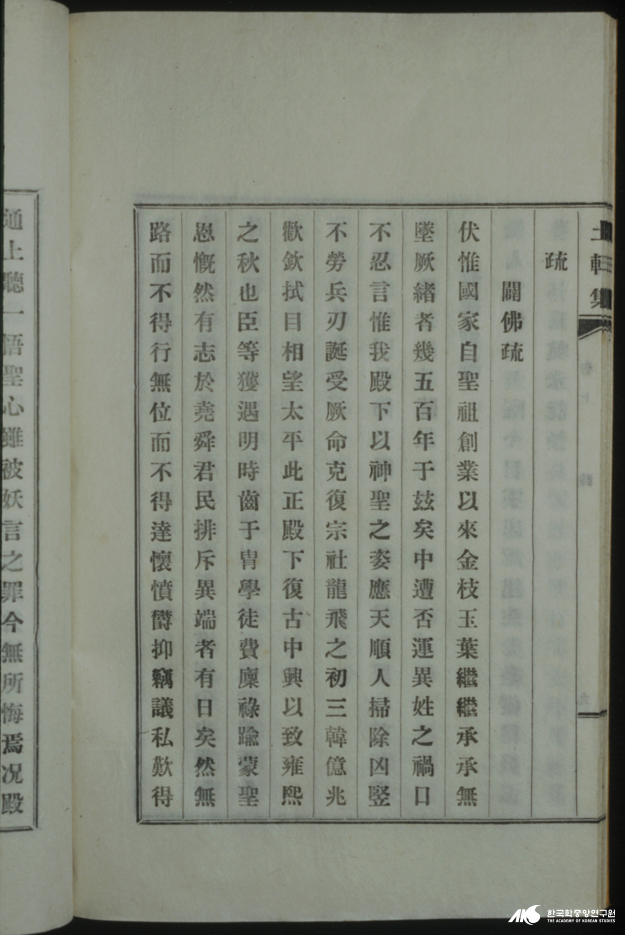 土軒集
疏
闢佛疏
伏惟國家自聖祖創業以來金枝玉葉繼繼承承無
墜厥緖者幾五百年于玆矣中遭否運異姓之禍口
不忍言惟我殿下以神聖之姿應天順人掃除凶竪
不勞兵刃誕受厥命克復宗社龍飛之初三韓億兆
歡欽拭目相望太平此正殿下復古中興以致雍熙
之秋也臣等獲遇明時齒于胄學徒費廩祿踰蒙聖
恩慨然有志於堯舜君民排斥異端者有日矣然無
路而不得行無位而不得達懷憤欝抑竊議私歎得
通上聽一悟聖心雖被妖言之罪今無所悔焉况殿
한국학중앙연구원
THE ACADEMY OF KOREAN STUDIES